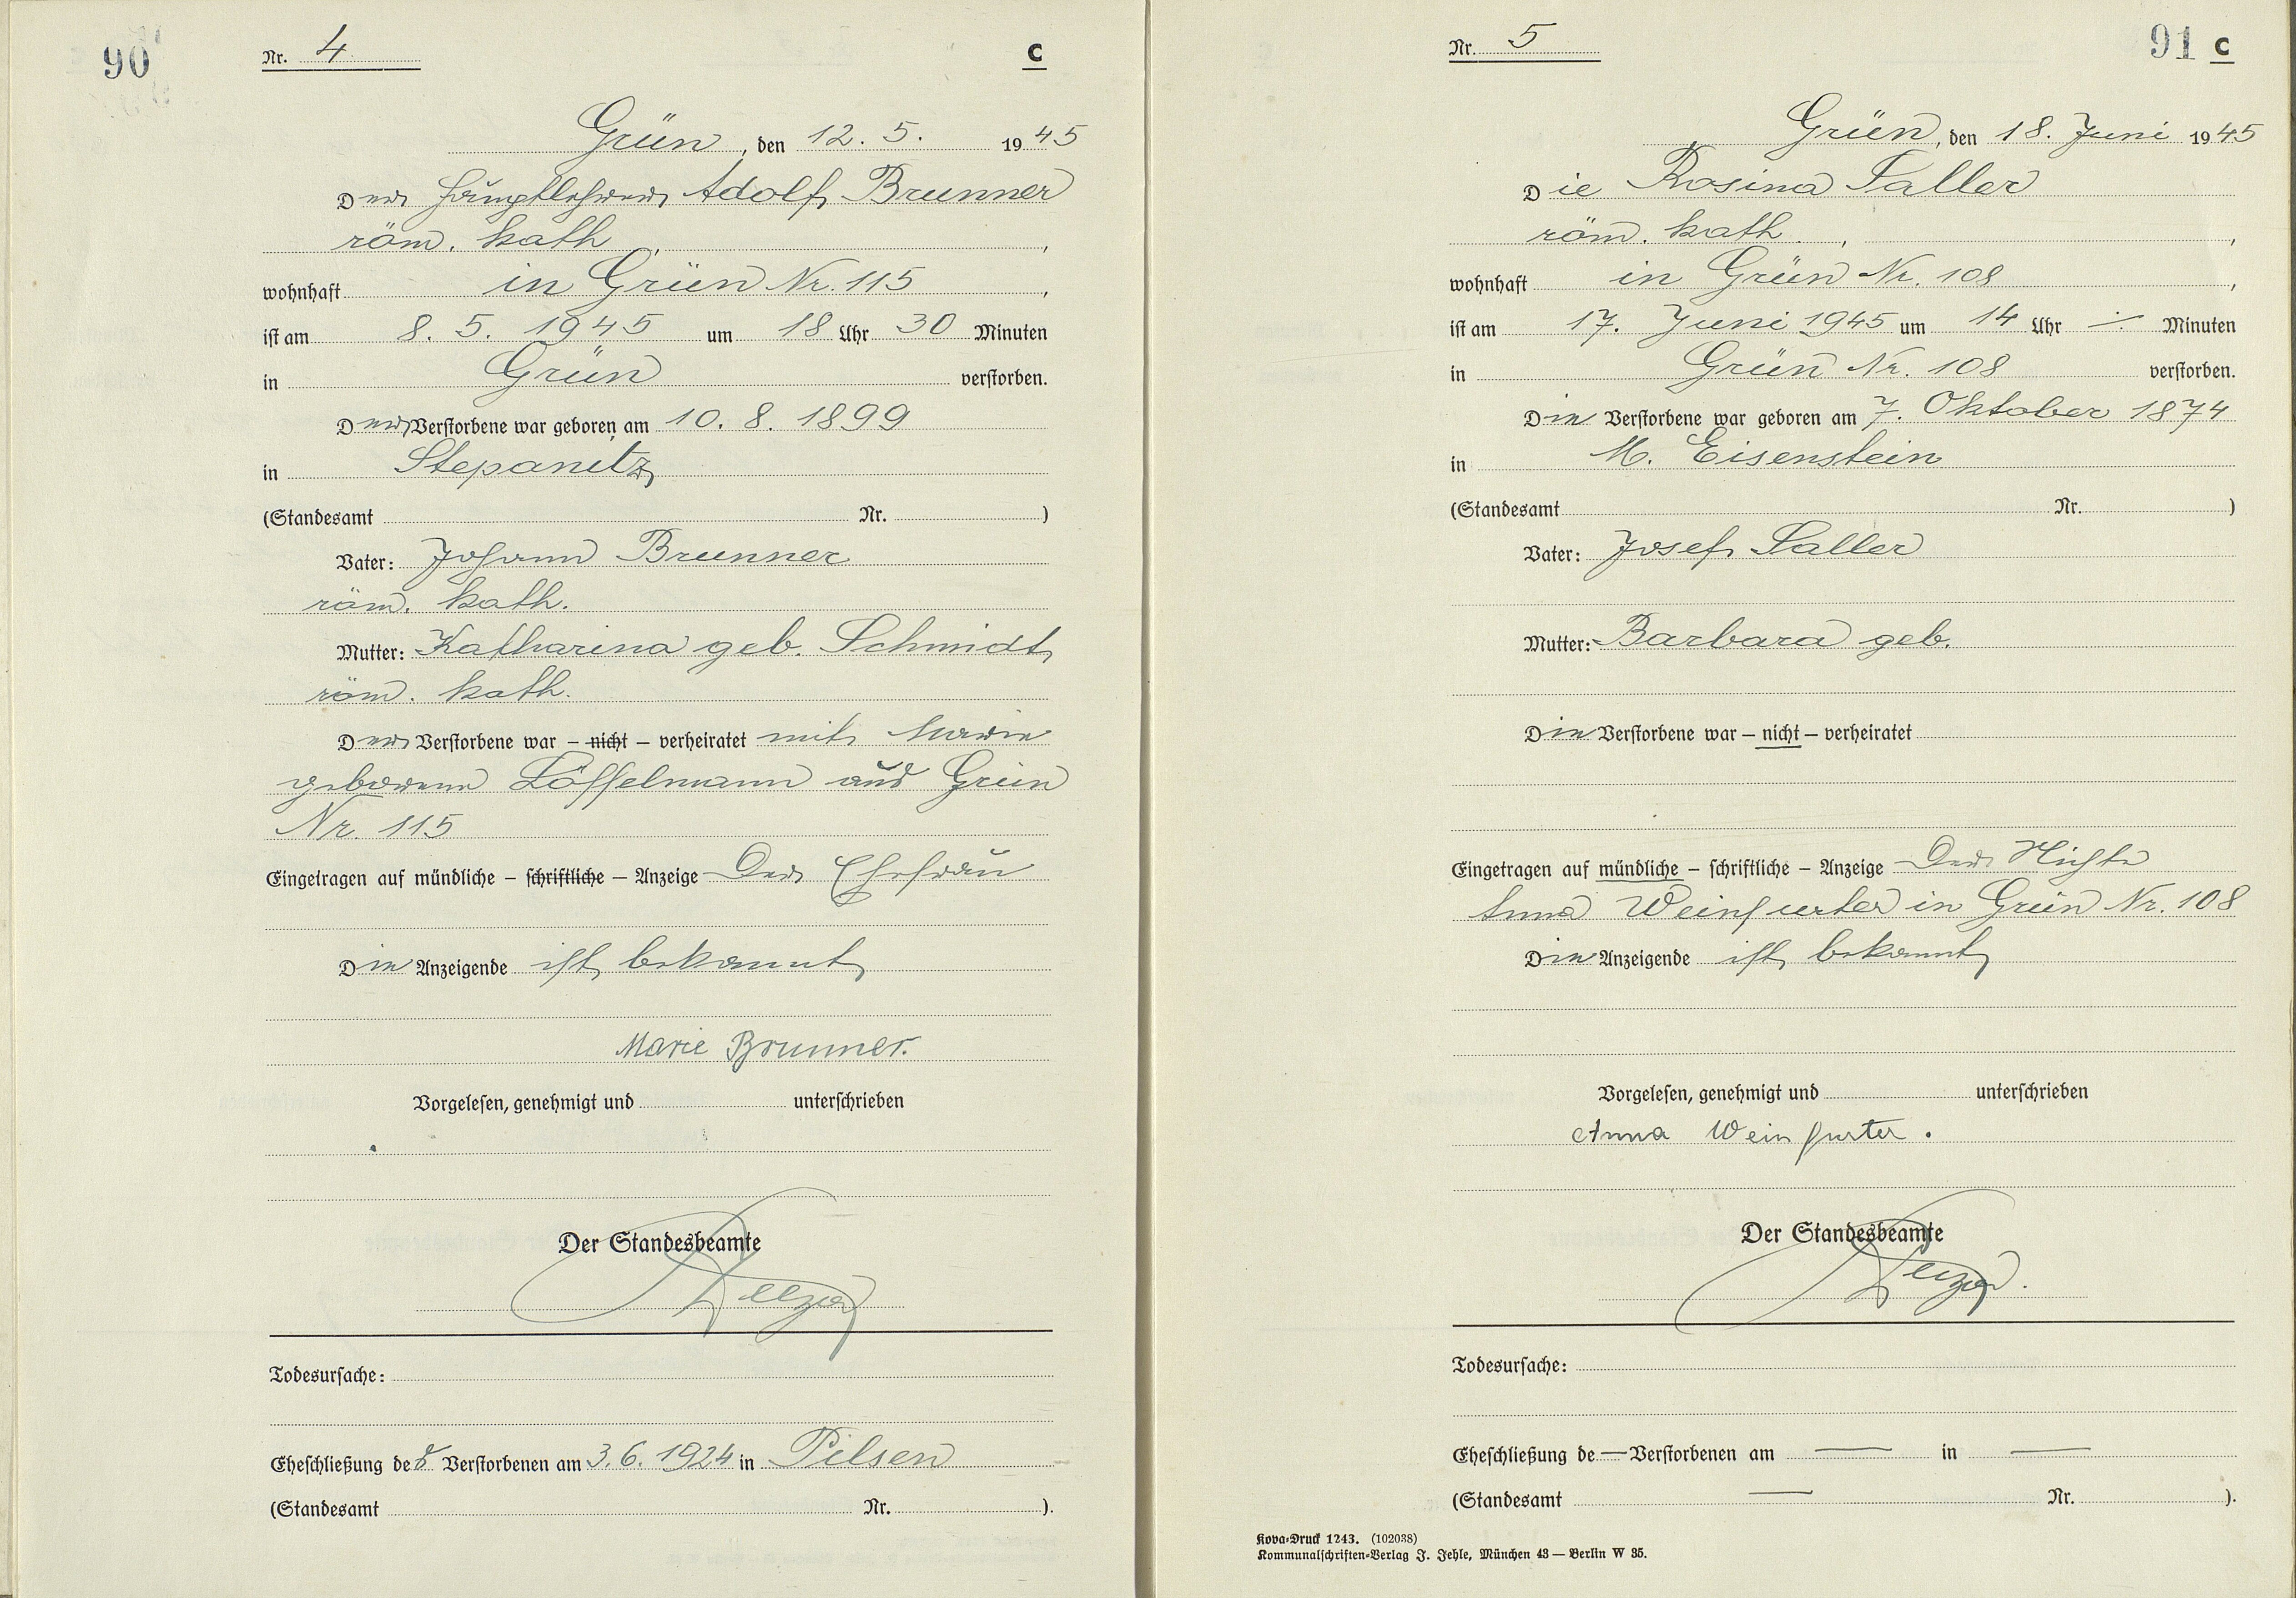 90
Nr. 4 C
Grün, den 12. 5. 1945
Der Hauptlehrer Adolf Brunner
röm. kath.,
wohnhaft in Grün Nr. 115,
ist am 8. 5. 1945 um 18 Uhr 30 Minuten
in Grün verstorben.
Der Verstorbene war geboren am 10. 8. 1899
in Stepanitz
(Standesamt Nr. )
Vater: Johann Brunner
röm. kath.
Mutter: Katharina geb. Schmidt
röm. kath.
Der Verstorbene war – nicht – verheiratet mit Marie
geborene Löffelmann aus Grün
Nr. 115
Eingetragen auf mündliche – schriftliche – Anzeige Der Ehefrau
Die Anzeigende ist bekannt
Marie Brunner.
Vorgelesen, genehmigt und unterschrieben
Der Standesbeamte
Todesursache:
Eheschließung des Verstorbenen am 3. 6. 1924 in Pilsen
(Standesamt Nr. ).
Nr. 5 91 C
Grün, den 18. Juni 1945
Die Rosina Saller
röm. kath.,
wohnhaft in Grün Nr. 108,
ist am 17. Juni 1945 um 14 Uhr ÷ Minuten
in Grün Nr. 108 verstorben.
Die Verstorbene war geboren am 7. Oktober 1874
in M. Eisenstein
(Standesamt Nr. )
Vater: Josef Saller
Mutter: Barbara geb.
Die Verstorbene war – nicht – verheiratet
Eingetragen auf mündliche – schriftliche – Anzeige Der Nichte
Anna Weinfurter in Grün Nr. 108
Die Anzeigende ist bekannt
Vorgelesen, genehmigt und unterschrieben
Anna Weinfurter.
Der Standesbeamte
Todesursache:
Eheschließung de — Verstorbenen am — in —
(Standesamt — Nr. ).
Kova-Druck 1243. (102038)
Kommunalschriften-Verlag J. Jehle, München 43 — Berlin W 35.